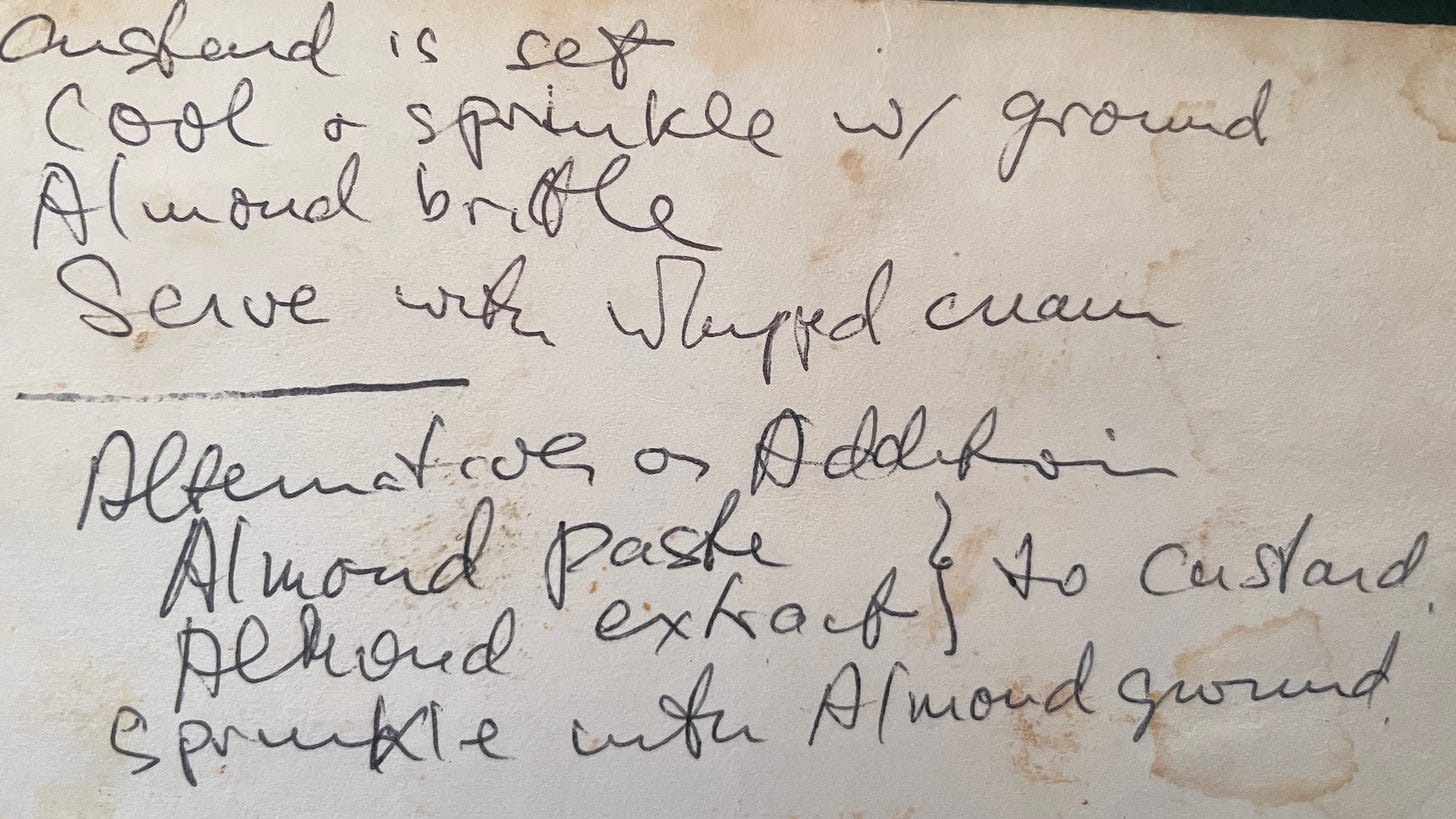 custard is set
Cool & sprinkle w/ ground
Almond brittle
Serve with Whipped cream
Alternative or Addition
Almond paste } to custard.
Almond extract
sprinkle with Almond ground.